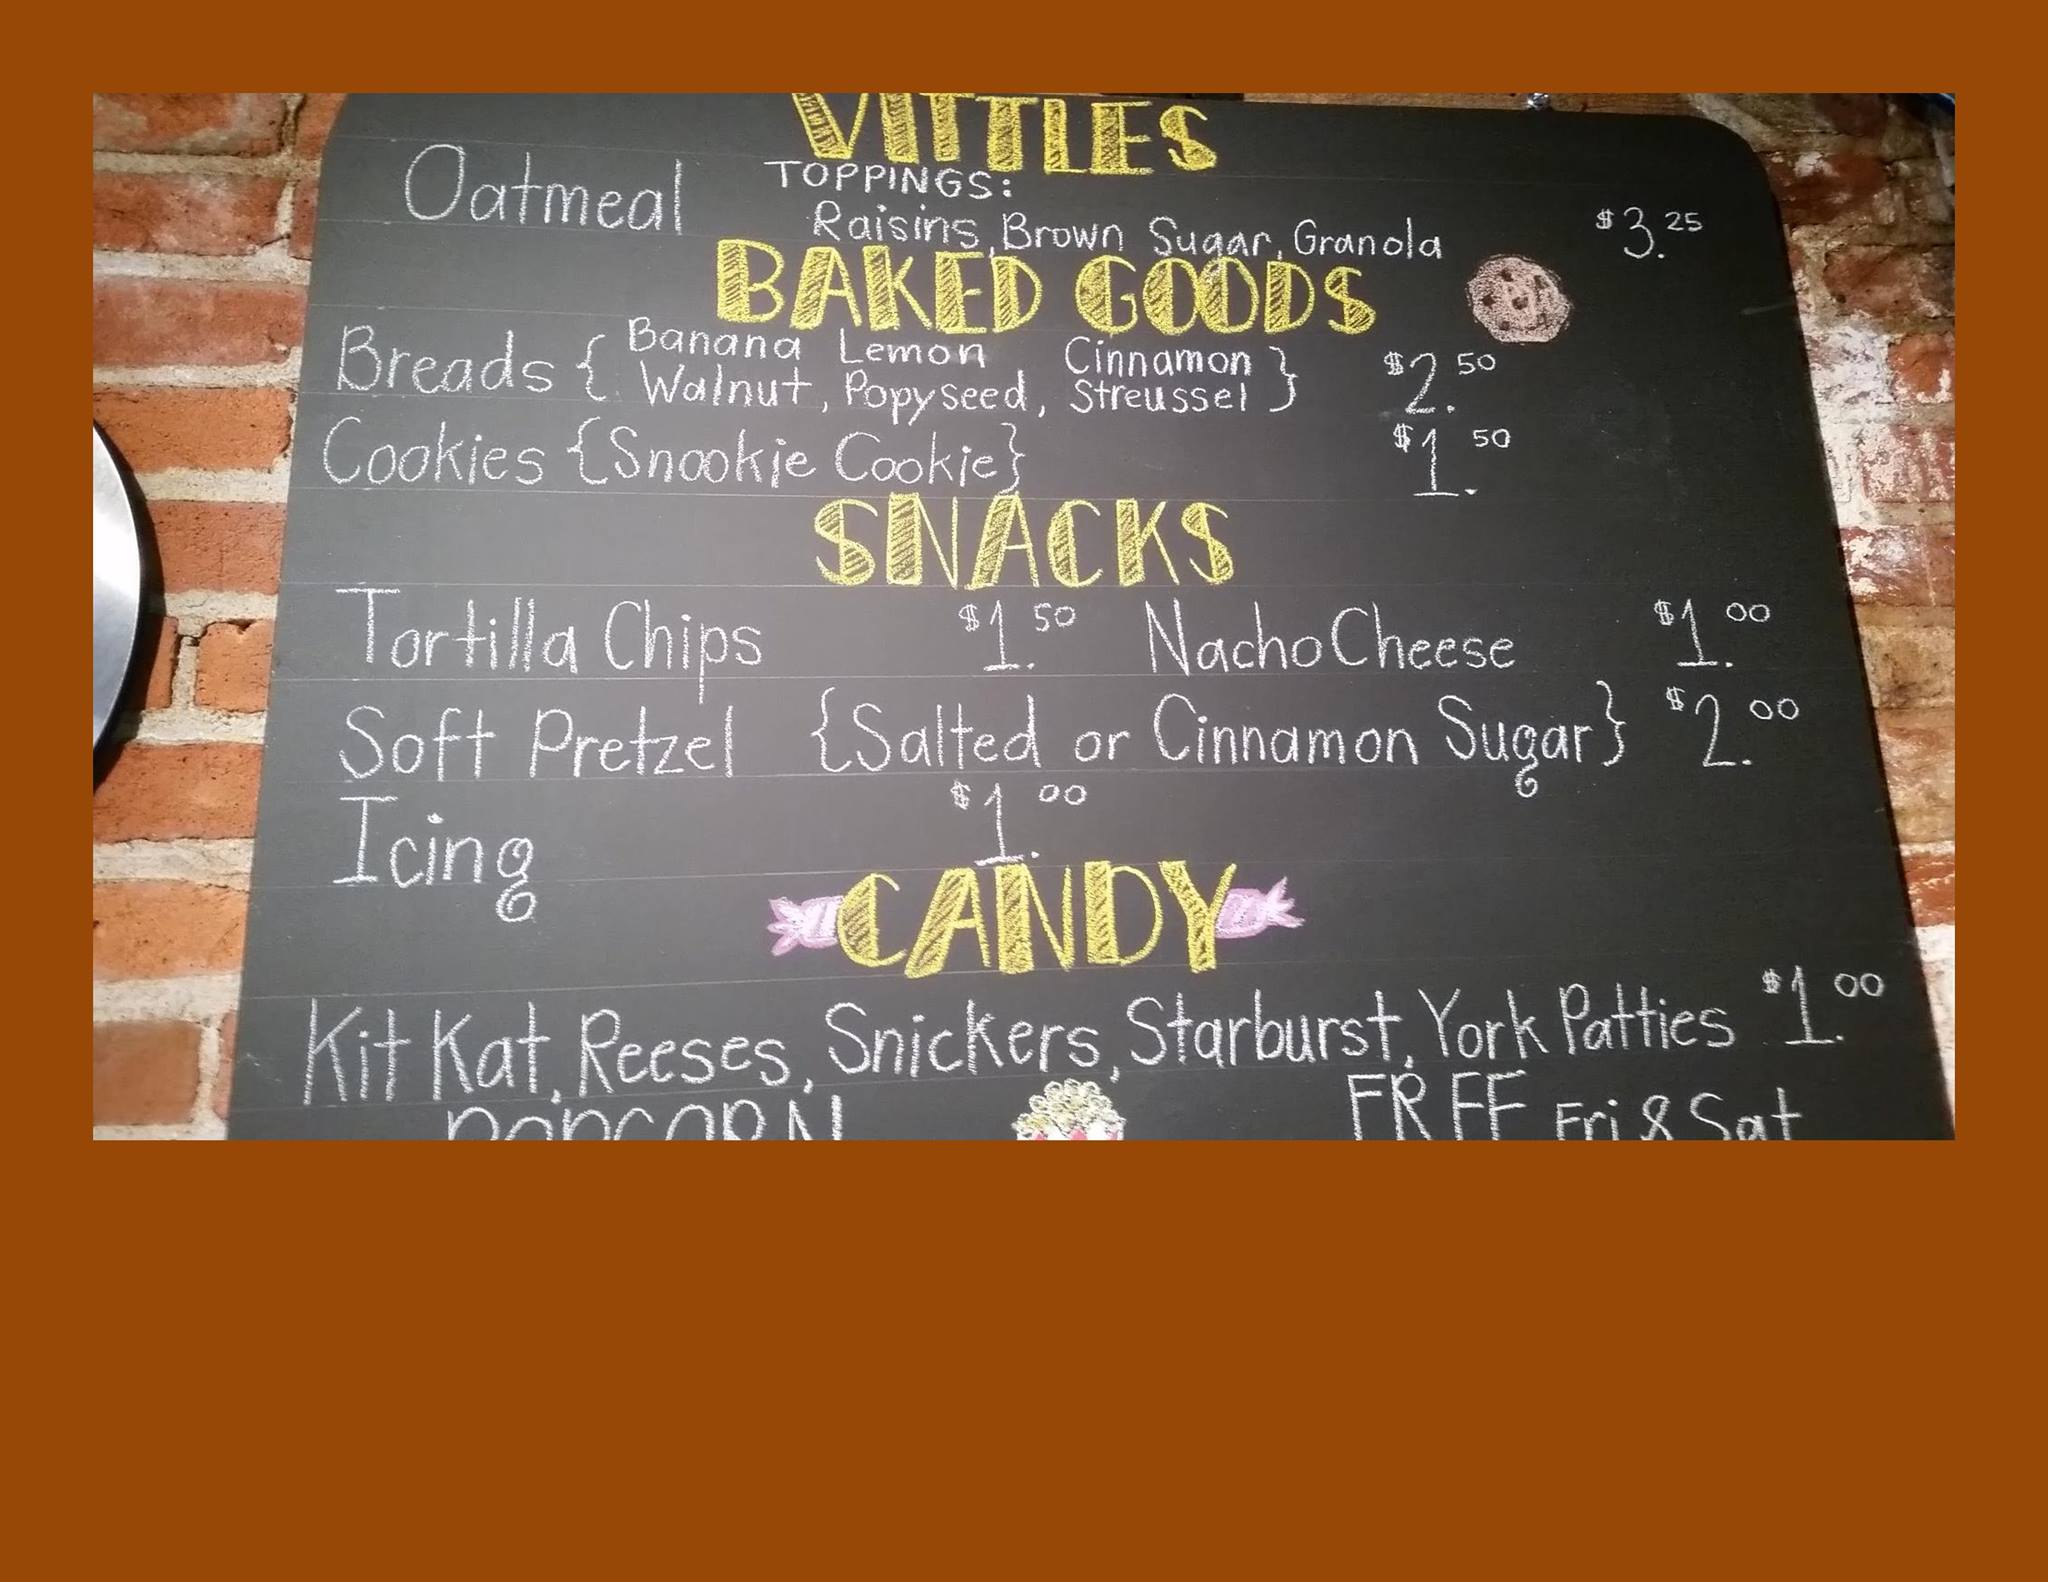 VITTLES
Oatmeal TOPPINGS:
Raisins, Brown Sugar, Granola $3.25
BAKED GOODS
Breads { Banana Lemon Cinnamon } $2.50
Walnut, Popyseed, Streussel
Cookies {Snookie Cookie} $1.50
SNACKS
Tortilla Chips $1.50 Nacho Cheese $1.00
Soft Pretzel {Salted or Cinnamon Sugar} $2.00
Icing $1.00
CANDY
Kit Kat, Reeses, Snickers, Starburst, York Patties $1.00
POPCORN FREE Fri & Sat